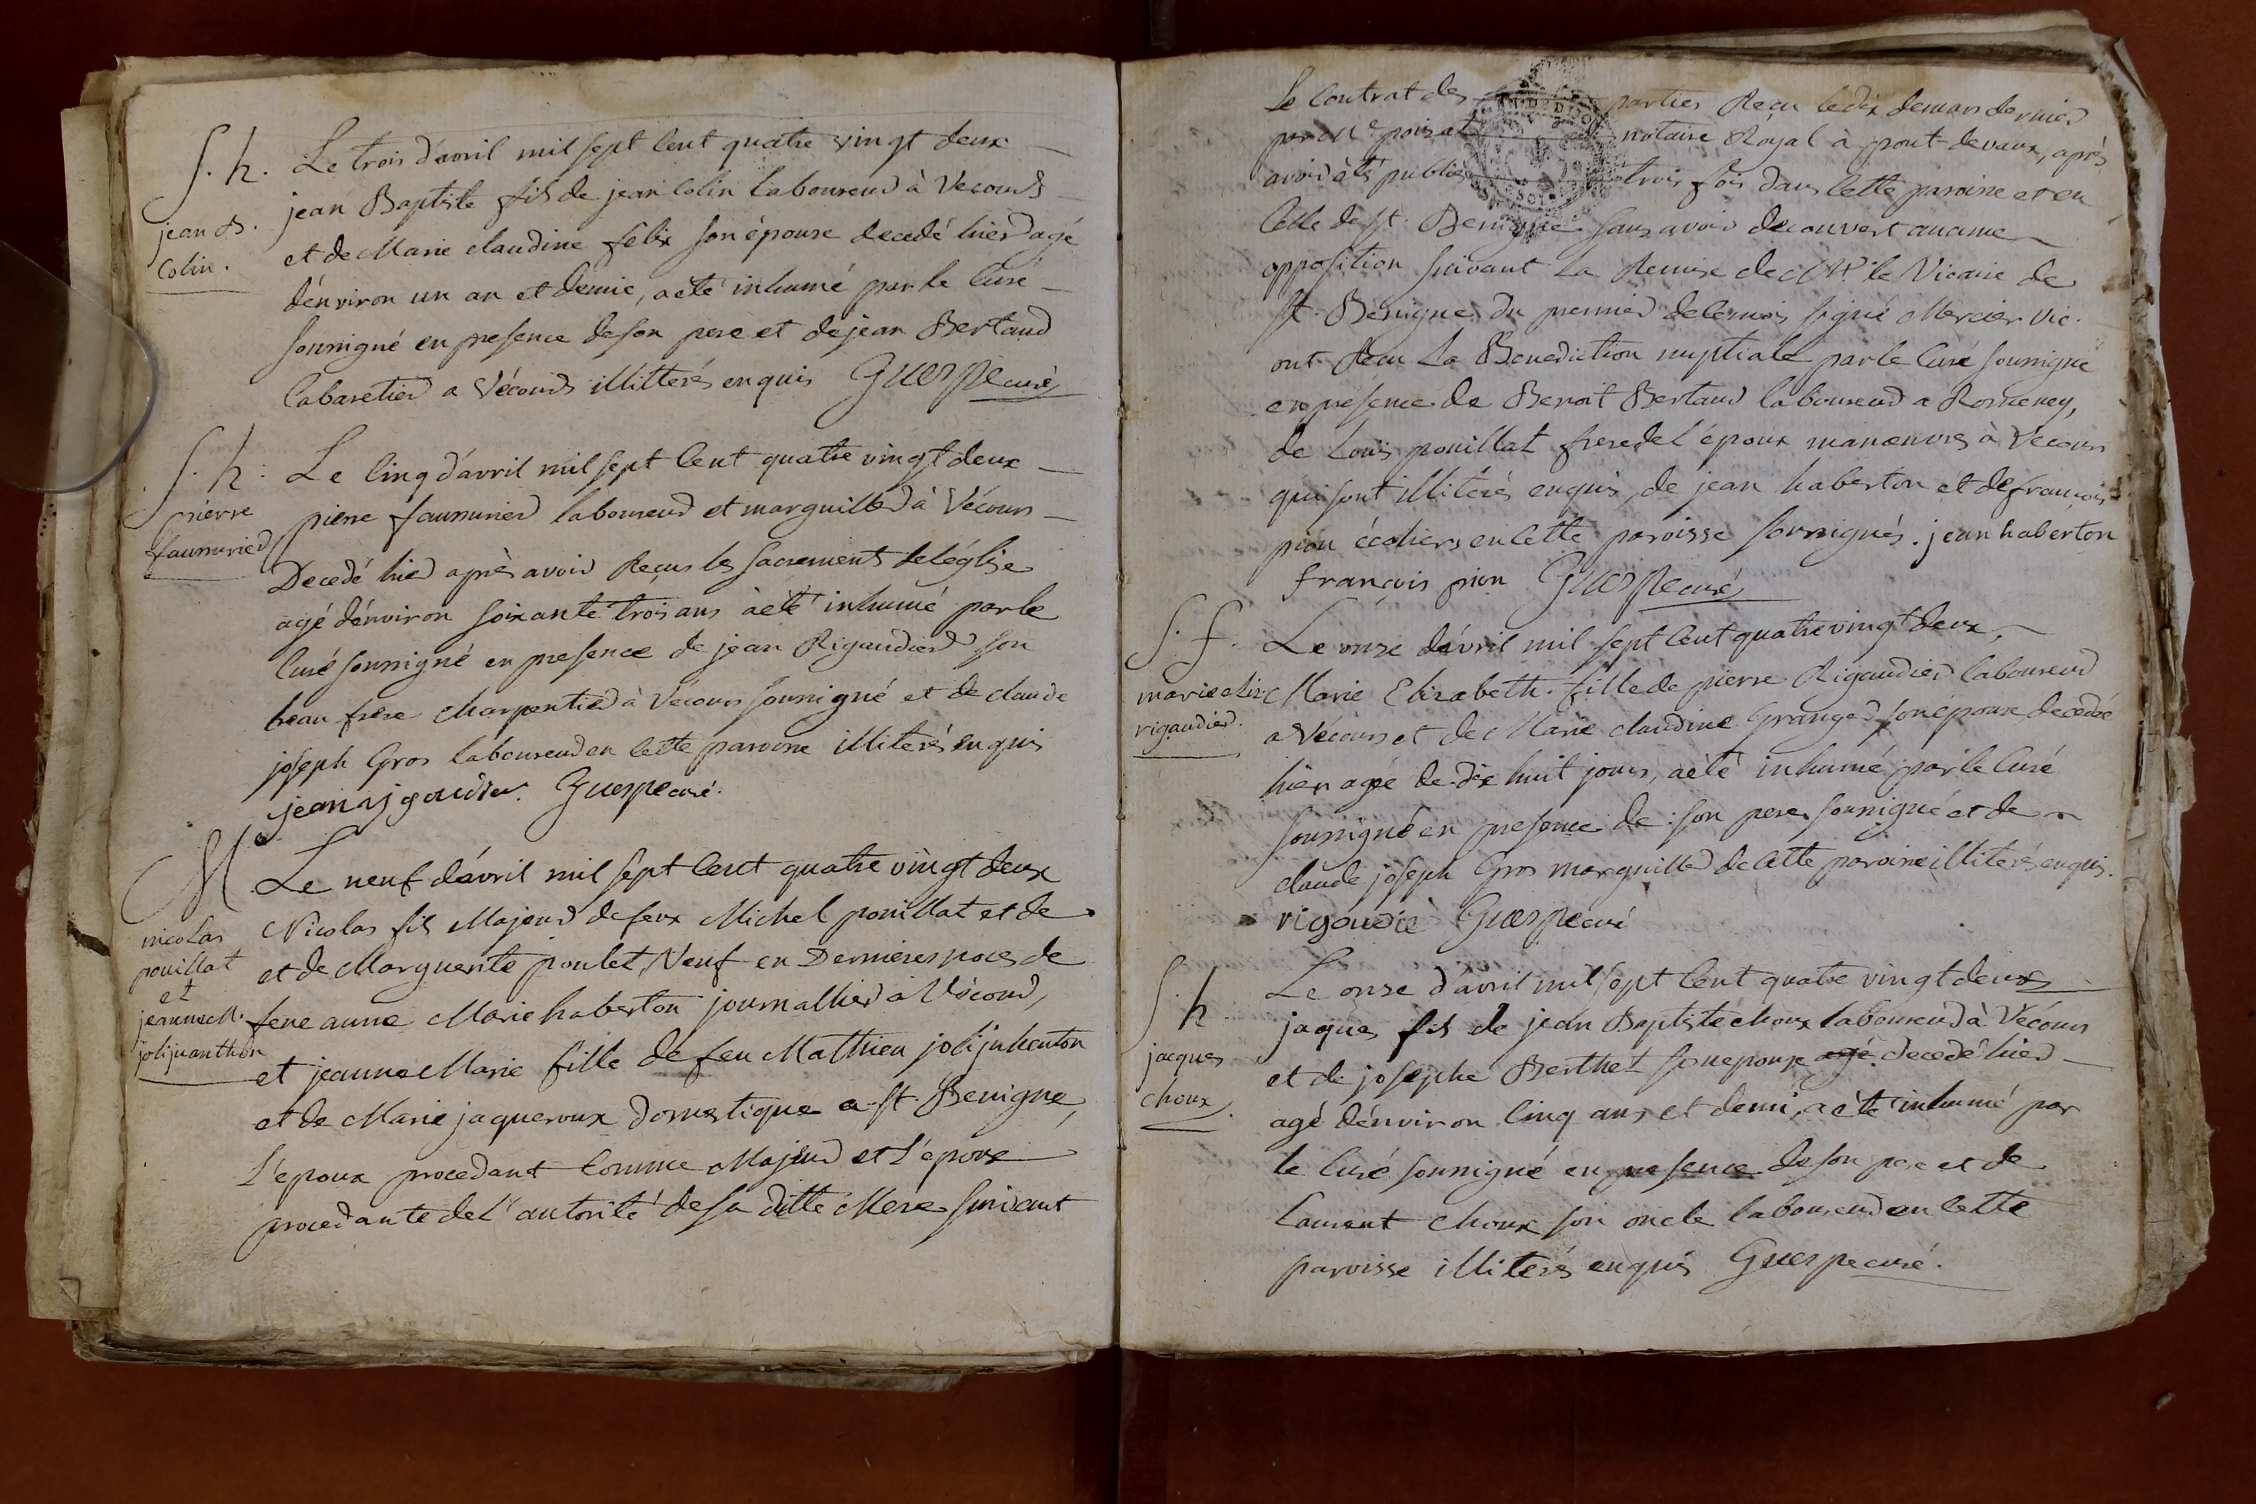 S. h.
jean B.
Colin.
Le trois d'avril mil sept Cent quatre vingt deux
jean Baptiste fils de jean Colin laboureur à Vecours
et de Marie claudine felix son épouse decedé hier agé
d'énviron un an et demie, a eté inhumé par le Curé
soussigné en presence de son pere et de jean Bertaud
Cabaretier a Vécours illitterés enquis Guerpe curé
S. h.
pierre
faussurier
Le Cinq d'avril mil sept Cent quatre vingt deux
pierre faussurier laboureur et marguiller à Vécours
Decedé hier après avoir Reçus les sacrements de léglise
agé d'énviron soixante trois ans à eté inhumé par le
Curé soussigné en presence de jean Rigaudier son
beau frere charpentier à Vécours soussigné et de claude
joseph Gros laboureur en cette paroisse illiterés enquis
jean rigoudier. Guerpe curé.
M
nicolas
pouillat
et
jeanne M.
jolijuanthon
Le neuf d'avril mil sept Cent quatre vingt deux
Nicolas fils Majeur de feux Michel pouillat et de
et de Marguerite poulet, Veuf en Dernieres noces de
feue anne Marie haberton journallier à Vécour,
et jeanne Marie fille de feu Mathieu jolijuhenton
et de Marie jaqueroux domestique a St. Benigne,
L'epoux procedant Comme Majeur et l'epouse
procedante de l'autorité de sa ditte Mere suivant
Le Contrat des parties Reçu le dix de mars dernier
par Me poisat notaire Royal à pont-de vaux, après
avoir été publiés trois fois dans Cette paroisse et en
Celle de St. Benigne sans avoir decouvert aucune
opposition suivant La Remise de Mr. le Vicaire de
St. Benigne du premier de ce mois signé Mercier Vic.
ont Recu La Benediction nuptiale par le Curé soussigne
en presence de Benoit Bertaud laboureur a Romeney,
de Louis pouillat frere de l'époux manoeuvres à Vecours
qui sont illiterés enquis, de jean haberton et de francois
pion écoliers en Cette paroisse soussignés. jean haberton
francois pion Guerpe curé
S. f.
marie eliz
rigaudier.
Le onze d'avril mil sept Cent quatre vingt deux,
Marie Elizabeth fille de pierre Rigaudier laboureur
a Vécours et de Marie claudine Granger son épouse decedée
hier agée de dix huit jours, a été inhumé par le Curé
soussigné en presence de son pere soussigné et de
claude joseph Gros marguiller de Cette paroisse illiterés enquis.
rigoudié Guerpe curé
S. h.
jacques
choux.
Le onze d'avril mil sept Cent quatre vingt deux
jaques fils de jean Baptiste choux laboureur à Vécours
et de josephe Berthet son epouse agé decedé hier
agé d'énviron Cinq ans et demi, a été inhumé par
le Curé soussigné en presence de son pere et de
Laurent choux son oncle laboureur en Cette
paroisse illiterés enquis Guerpe curé.